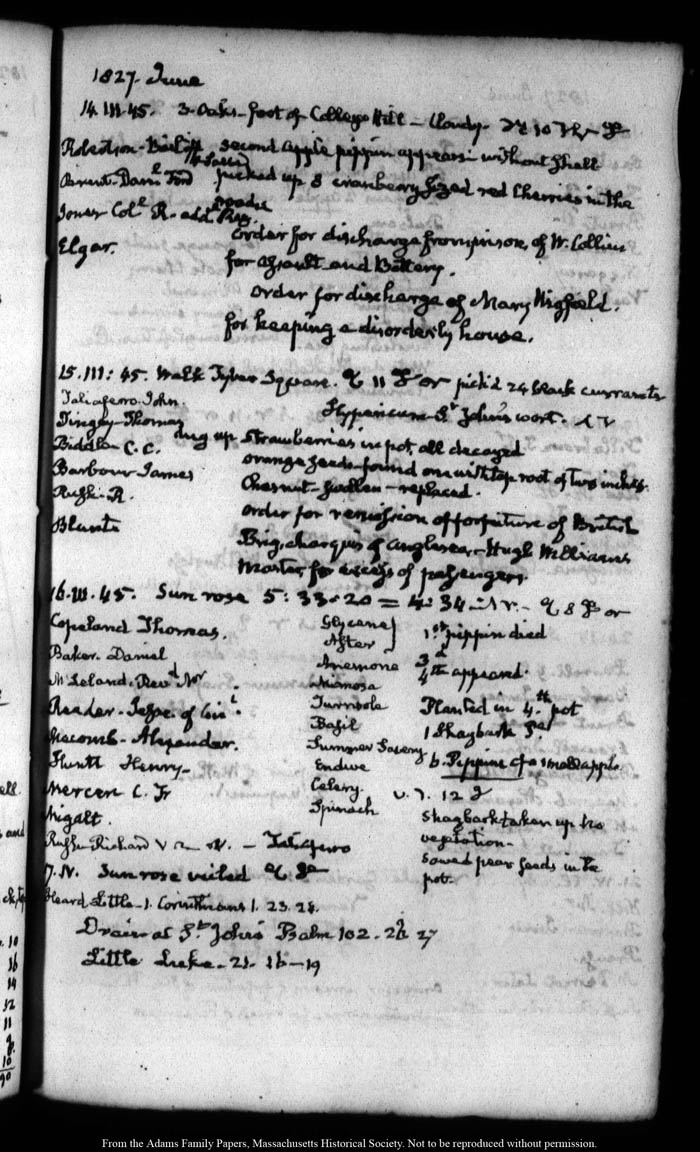 1827. June
14. III. 45. 3 Oaks - foot of College Hill - Cloudy.
Robertson - Bailiff second apple pippin appears: without shell
Brent - Dan.l picked up 8 cranberry sized red Cherries in the
Jones Col.l R. add.
Elgar. order for discharge from prison, of W. Collins
for assault and Battery.
order for discharge of Mary Higfield.
for keeping a disorderly house.
15. III: 45. Walk Tyber Square. pick'd 24 black currants
Taliaferro John. St. John's wort.
Tingey - Thomas
Biddle - C. C. dug up strawberries in pot, all decayed
Barbour James orange seeds - found one with tap root of two inches.
Rush - R. Chesnut - swollen - replaced.
order for remission of forfeiture of British
Blunt Brig, charges of Anglesea, - Hugh Williams
Master, for excess of passengers.
16. III. 45. Sun rose 5: 33. 20 = 4: 34
Copeland Thomas. Glycene
Aster 1st pippin died
Baker. Daniel Anemone 3d
4th appeared.
McLeland. Rev.d Mr Mimosa
Reader - Turnsole Planted in 4.th pot
Basil 1 Shagbark
Macomb - Alexander. Summer Savory
Huntt Henry - Endive 6. Pippins of a small apple
Mercer C. F. Celery.
Wigalt. Spinach Shagbark taken up no
Rush Richard - Taliaferro vegetation -
17. IV. Sun rose veiled sowed pear seeds in the
pot.
Heard Little - 1. Corinthians 1. 23. 28.
at St. John's Psalm 102. 27
Little Luke - 21. 16 - 19
From the Adams Family Papers, Massachusetts Historical Society. Not to be reproduced without permission.